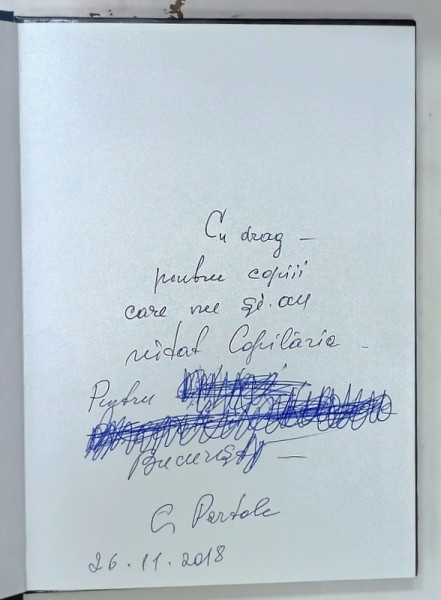 Cu drag –
pentru copiii
care nu și-au
uitat Copilăria –
Pentru
București –
C Partole
26.11.2018